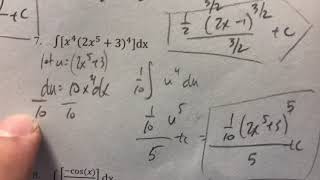 +c
1/2 (2x-1)^3/2 +c
3/2
7. ∫[x⁴(2x⁵ + 3)⁴]dx
let u=(2x⁵+3)
du = 10x⁴dx
10 10
1/10 ∫ u⁴ du
1/10 u⁵
5 +c
= 1/10 (2x⁵+3)⁵
5 +c
∫[-cos(x)]dx